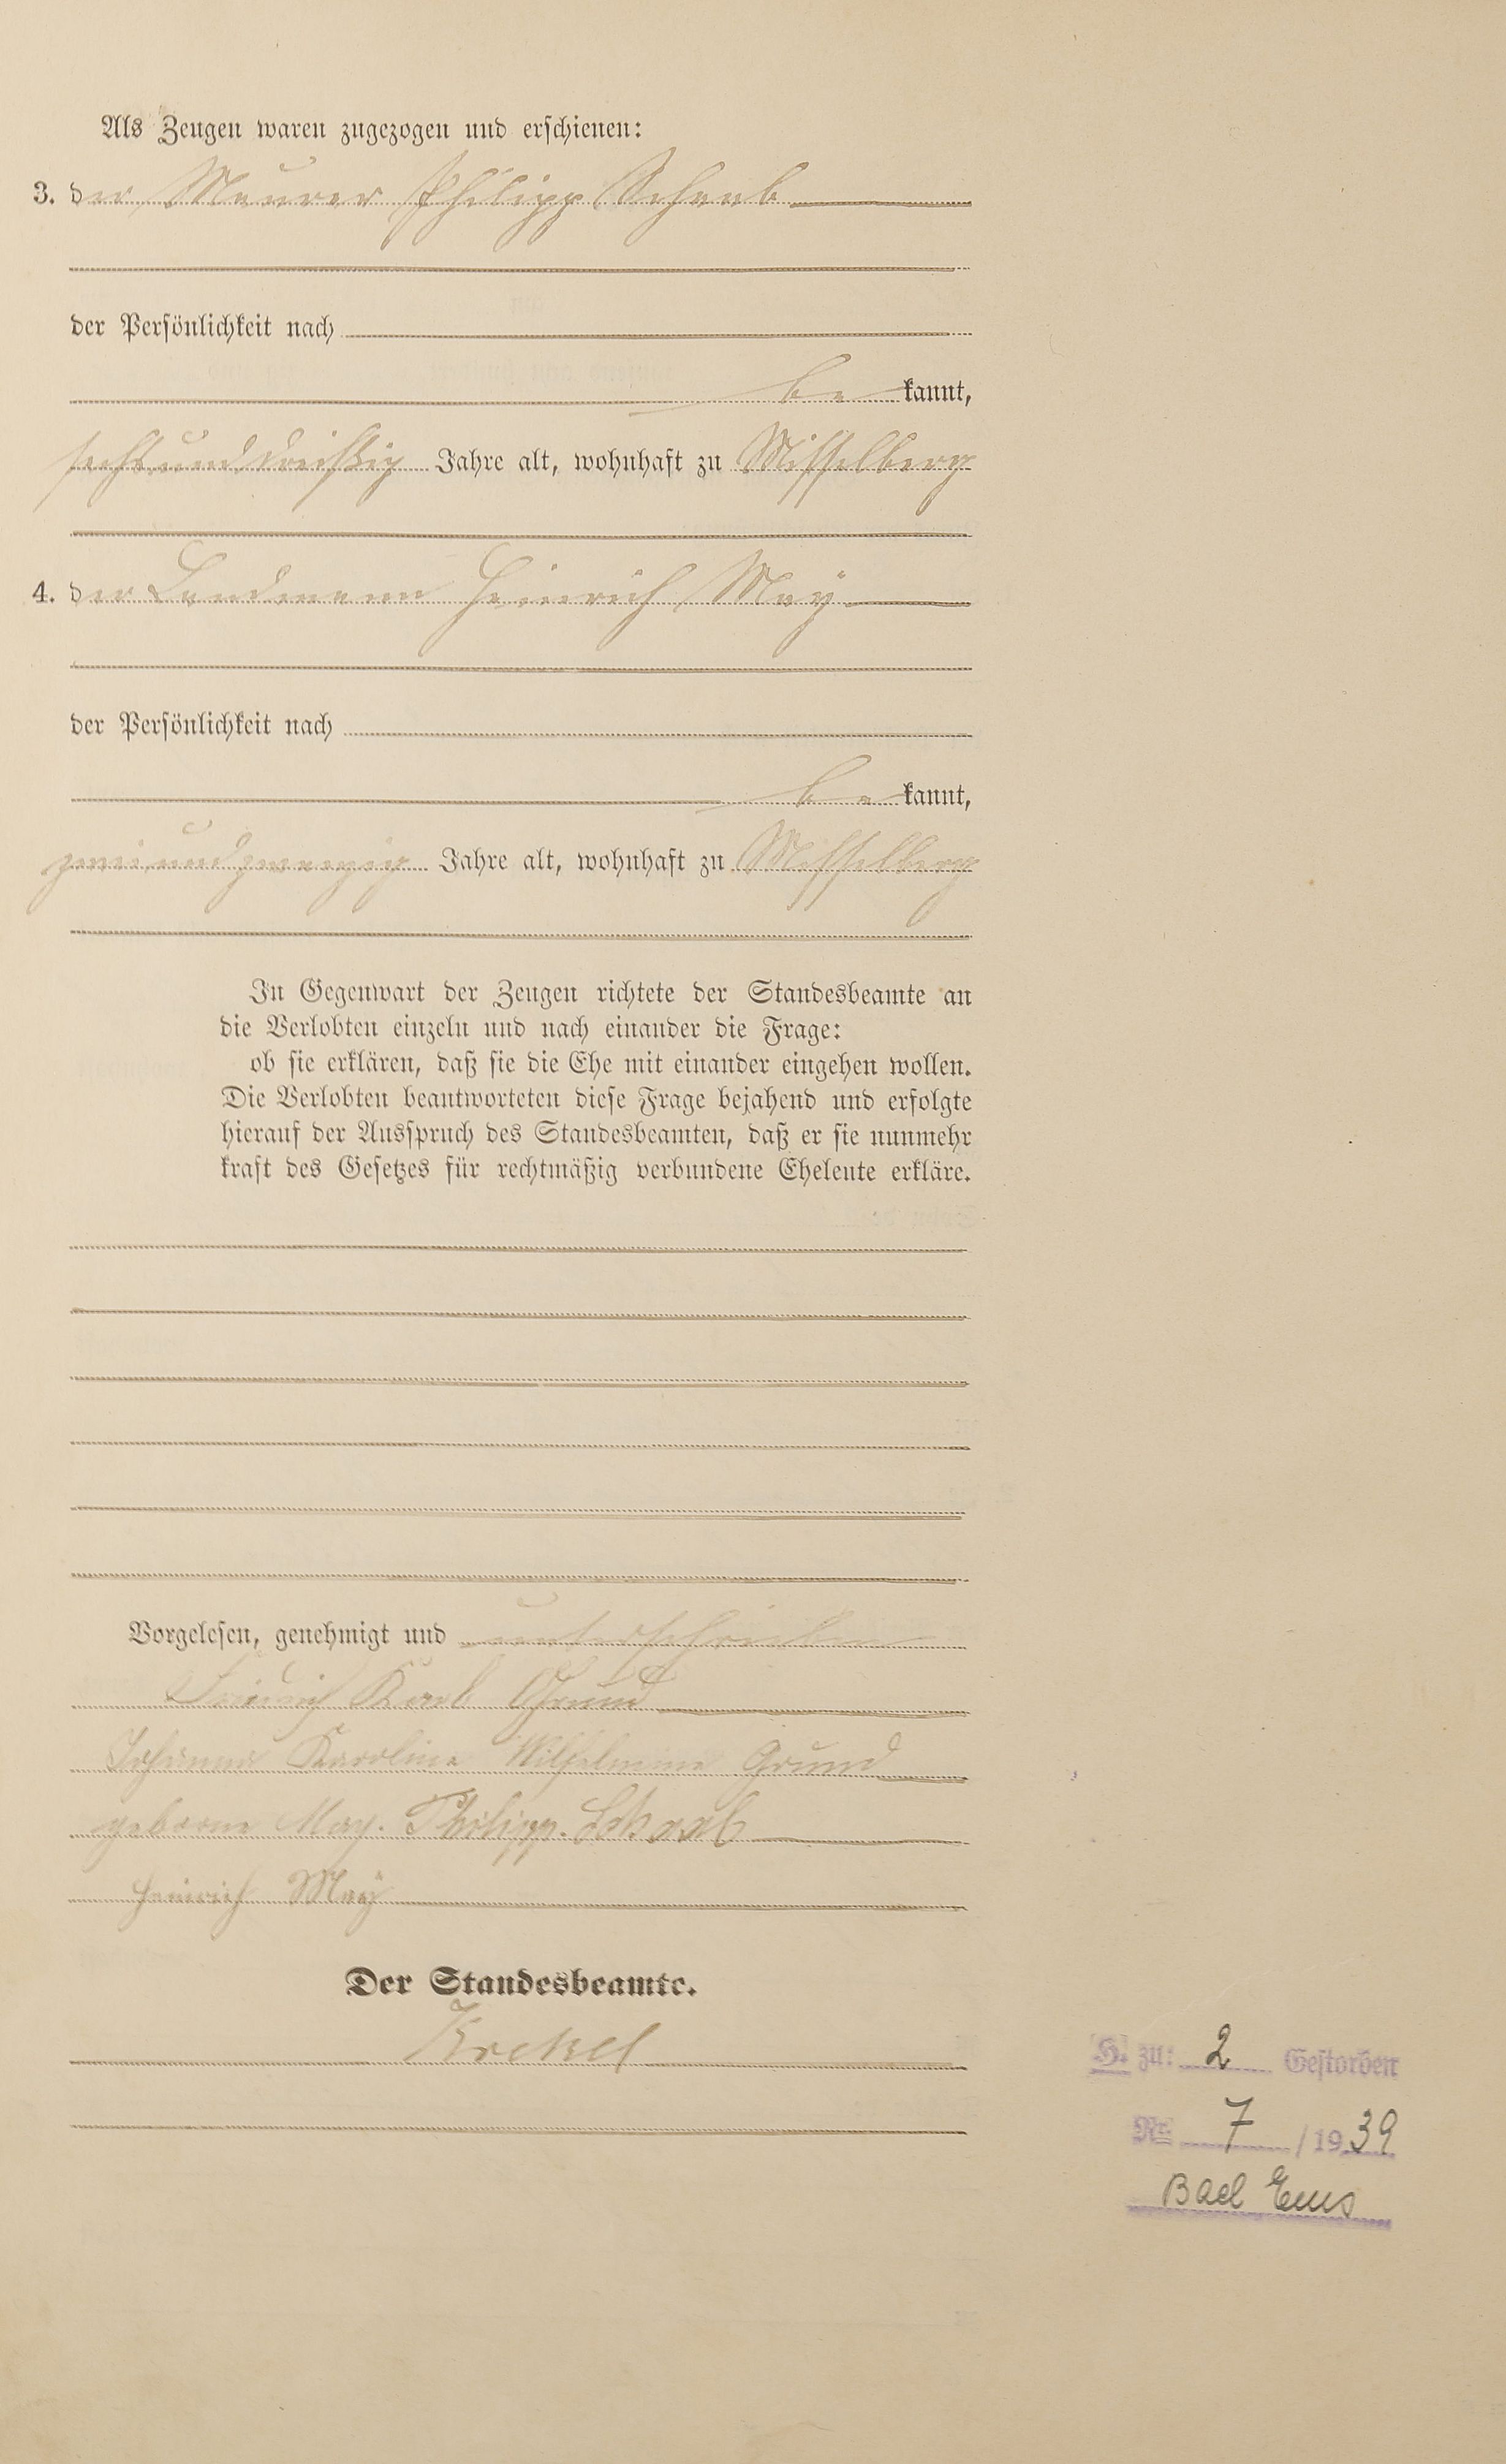 Als Zeugen waren zugezogen und erschienen:
3. der Maurer Philipp Schaab
der Persönlichkeit nach
be kannt,
sechsunddreißig Jahre alt, wohnhaft zu Misselberg
4. der Landmann Heinrich May
der Persönlichkeit nach
be kannt,
zweiundzwanzig Jahre alt, wohnhaft zu Misselberg
In Gegenwart der Zeugen richtete der Standesbeamte an
die Verlobten einzeln und nach einander die Frage:
ob sie erklären, daß sie die Ehe mit einander eingehen wollen.
Die Verlobten beantworteten diese Frage bejahend und erfolgte
hierauf der Ausspruch des Standesbeamten, daß er sie nunmehr
kraft des Gesetzes für rechtmäßig verbundene Eheleute erkläre.
Vorgelesen, genehmigt und unterschrieben
Friedrich Karl Grund
Johanna Karoline Wilhelmine Grund
geborne May. Philipp. Schaab
Heinrich May
Der Standesbeamte.
Krekel
H. zu: 2 Gestorben
Nr. 7 / 1939
Bad Ems